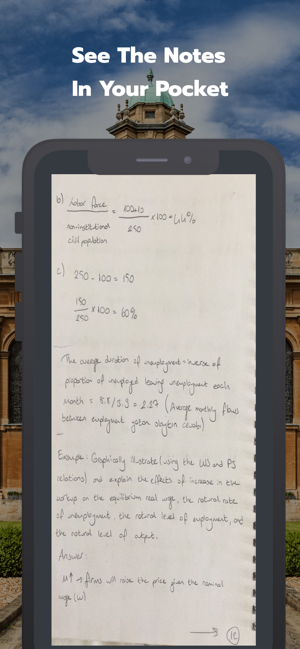 See The Notes
In Your Pocket
b) Labor force = 100+10 / 250 × 100 = 44%
noninstitutional
civil population
c) 250 - 100 = 150
150 / 250 × 100 = 60%
The average duration of unemployment = inverse of
proportion of unemployed leaving unemployment each
month = 8.8/3.9 = 2.27 (Average monthly flows
between employment
Example: Graphically illustrate (using the WS and PS
relations) and explain the effects of increase in the
markup on the equilibrium real wage, the natural rate
of unemployment, the natural level of employment, and
the natural level of output.
Answer:
μ↑ → firms will raise the price given the nominal
wage (W)